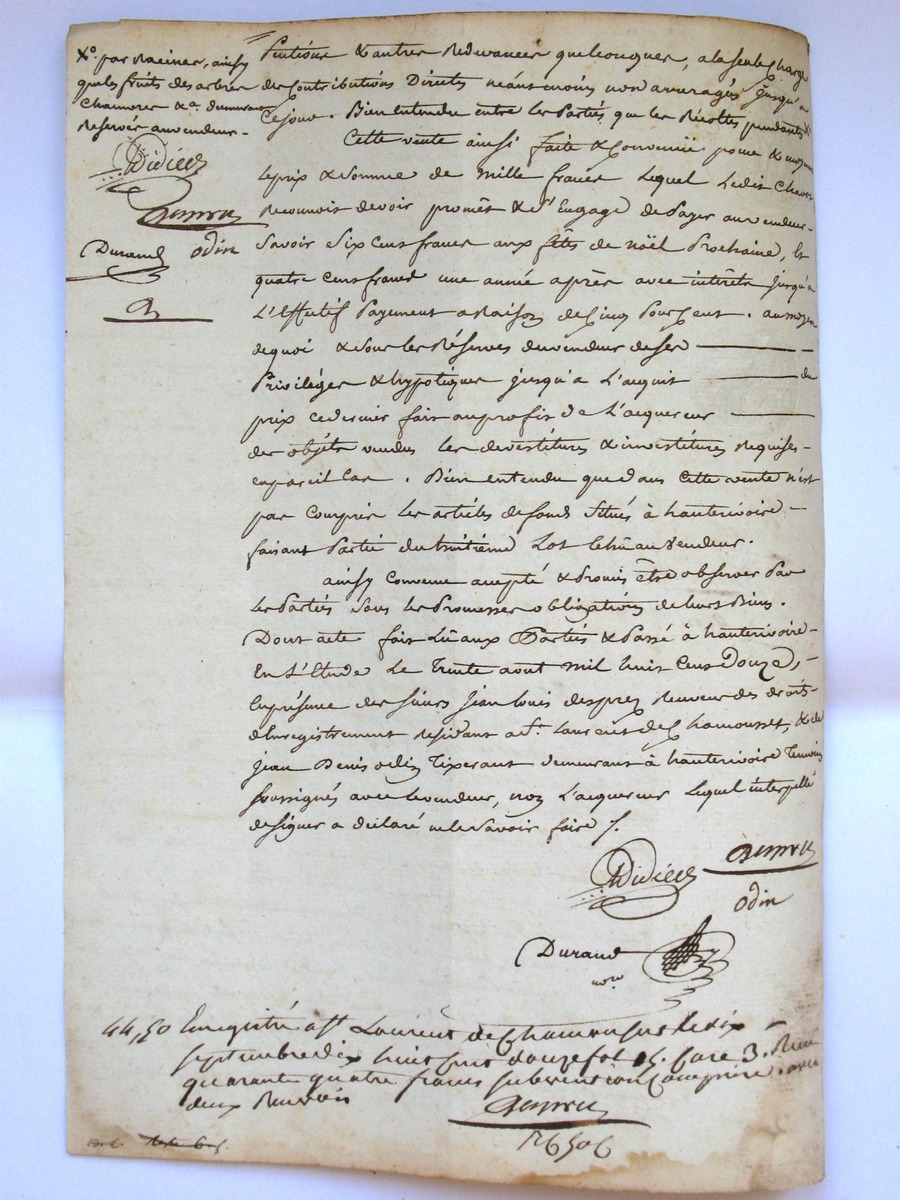 X°. par Racines, ainsy
que les fruits des arbres
Chanvres &a. demeurans
Reservés au vendeur -
Didier
Desprez
Durand odin
Pentions & autres Redevances quelconques, a la seule Charge
des Contributions Directes néantmoins non arreragés jusqu'a
Ce jour. Bien entendu entre les Parties que les Récoltes pendantes X°
Cette vente ainsi faite & Convenüe pour & moyen
le prix & Somme de Mille francs Lequel Ledit
Reconnoit devoir promet & s'Engage de Payer au vendeur -
Savoir Six Cent francs aux fêtes de noël Prochaine, Et
quatre cent francs une année après avec intérêts jusqu'a
L'Effectif Payement a Raison de Cinq Pour Cent. au moyen
de quoi & Sous les Réserves du vendeur de ses
Privilèges & hypotèques jusqu'a L'acquit du
prix ce dernier fait au profit de L'acquereur
des objets vendus les devestitures & investitures Requises -
en pareil Cas. Bien entendu que dans Cette vente n'est
pas Compris les articles de fonds Situés à hauterivoire -
faisant Partie du huitième Lot Echu au vendeur.
ainsy Convenu accepté & Promis être observer Par
les Parties Sous les Promesses obligations de leurs Biens.
Dont acte fait Lû aux Parties & Passé à hauterivoire -
En L'Etude Le Trente aout Mil huit Cent Douze, -
En présence des Sieurs Jean Louis desprez Receveur des droits
d'Enregistrement Residant a St. Laurent de Chamousset, & de
Jean Denis odin Tixerant demeurant à hauterivoire Temoins
Soussignés avec le vendeur, non L'acquereur Lequel interpellé
de Signer a déclaré ne le Savoir faire /.
Didier Desprez
odin
Durand
nore
44,50 Enregistré a St Laurent de Chamousset le dix
septembre dix huit cent douze fol 15. Case 3. Reçu
quarante quatre francs subvention Comprise. avec
deux Renvois
Desprez